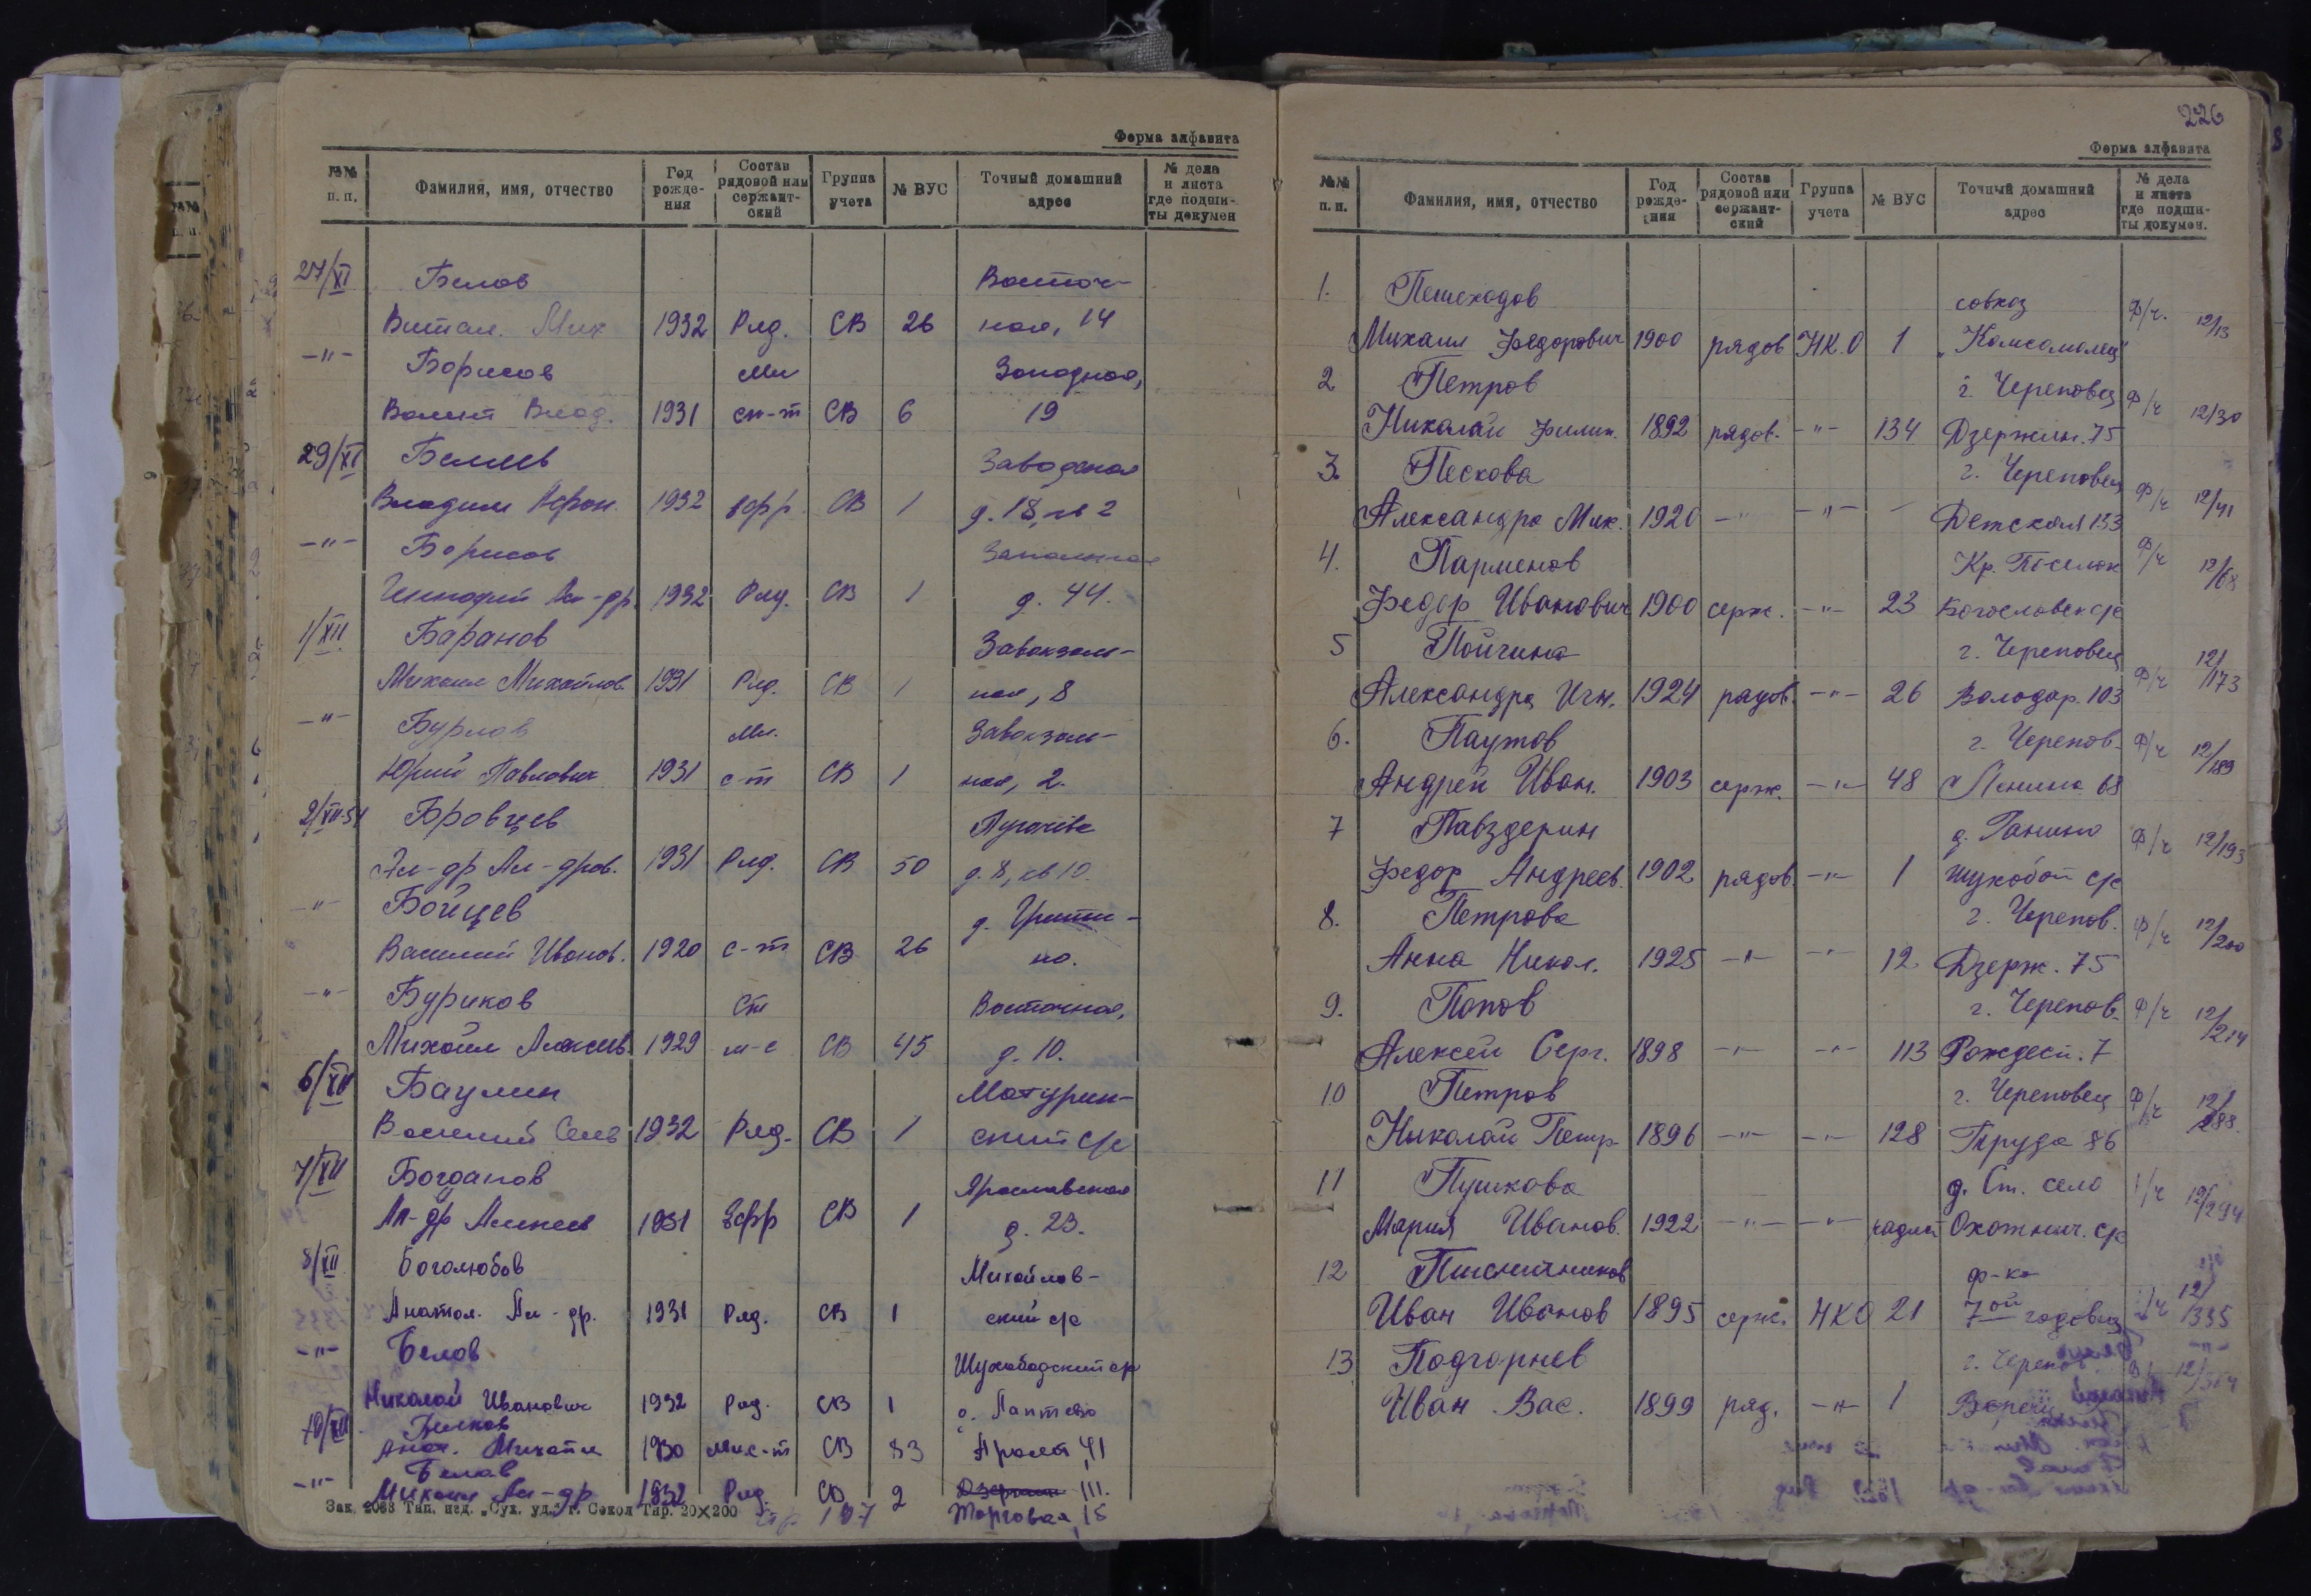 Форма алфавита
№№ п. п. Фамилия, имя, отчество Год рожде-ния Состав рядовой или сержант-ский Группа учета № ВУС Точный домашний адрес № дела и листа где подши-ты докумен
27/XI Белов Восточ-
Витал. Мих 1932 Ряд. СВ 26 ная, 14
-"- Борисов Мл Западная,
Валент Влад. 1931 с-т СВ 6 19
29/XI Беляев Заводская
Владим 1932 ефр СВ 1 д. 18, кв 2
-"- Борисов
Геннадий Ал-др. 1932 Ряд. СВ 1 д. 44.
1/XII Баранов Завокзаль-
Михаил Михайлов. 1931 Ряд. СВ 1 ная, 8
-"- Бурлов Мл. Завокзаль-
Юрий Павлович 1931 с-т СВ 1 ная, 2.
2/XII-54 Бровцев Пугачева
Ал-др Ал-дров. 1931 Ряд. СВ 50 д. 8, кв 10.
-"- Бойцев д.
Василий Иванов. 1920 с-т СВ 26 но.
-"- Буриков Ст Восточная,
Михаил Алексеев 1929 СВ 45 д. 10.
6/XII Баулин Матурин-
Василий 1932 Ряд. СВ 1 ский с/с
7/XII Богданов Ярославская
Ал-др Алексеев 1931 Ефр СВ 1 д. 23.
8/XII Боголюбов Михайлов-
Анатол. Ал-др. 1931 Ряд. СВ 1 ский с/с
-"- Белов Шухободский с/с
Николай Иванович 1932 Ряд. СВ 1 Лаптево
10/XII Белков
Анат. Михайл 1930 мл с-т СВ 83 41
-"- Белов
Михаил Ал-др 1932 Ряд. СВ 2 111.
Зак. 2088 Тип. изд. „Сух. уд." г. Сокол Тир. 20×200 Торговая, 15
226
Форма алфавита
№№ п. п. Фамилия, имя, отчество Год рожде-ния Состав рядовой или сержант-ский Группа учета № ВУС Точный домашний адрес № дела и листа где подши-ты докумен.
1. Пешеходов совхоз ф/ч. 12/13
Михаил Федорович 1900 рядов НКО 1 „Комсомолец"
2 Петров г. Череповец ф/ч 12/30
Николай Филип. 1892 рядов. -"- 134 Дзержин. 75
3. Пескова г. Череповец ф/ч 12/41
Александра Мих. 1920 -"- -"- - Детская 133
4. Парменов Кр. Поселок ф/ч 12/68
Федор Иванович 1900 серж. -"- 23 Богословск с/с
5 Пойгина г. Череповец ф/ч 12/173
Александра Игн. 1924 рядов. -"- 26 Володар. 103
6. Паутов г. Черепов. ф/ч 12/189
Андрей Иван. 1903 серж. -"- 48 Ленина 68
7 Павздерин д. Ганино ф/ч 12/193
Федор Андреев. 1902 рядов. -"- 1 Шухобот с/с
8. Петрова г. Черепов. ф/ч 12/200
Анна Никол. 1925 -"- -"- 12 Дзерж. 75
9. Попов г. Черепов. ф/ч 12/214
Алексей Серг. 1898 -"- -"- 113 Рождест. 7
10 Петров г. Череповец ф/ч 12/288.
Николай Петр 1896 -"- -"- 128 Труда 86
11 Пушкова д. Ст. село 12/294
Мария Иванов. 1922 -"- -"- Охотнич. с/с
12 Пшенитников ф-ка 12/335
Иван Иванов 1895 серж. НКО 21 7ой годовщ
13 Подгорнев г. Черепов
Иван Вас. 1899 ряд. -"- 1